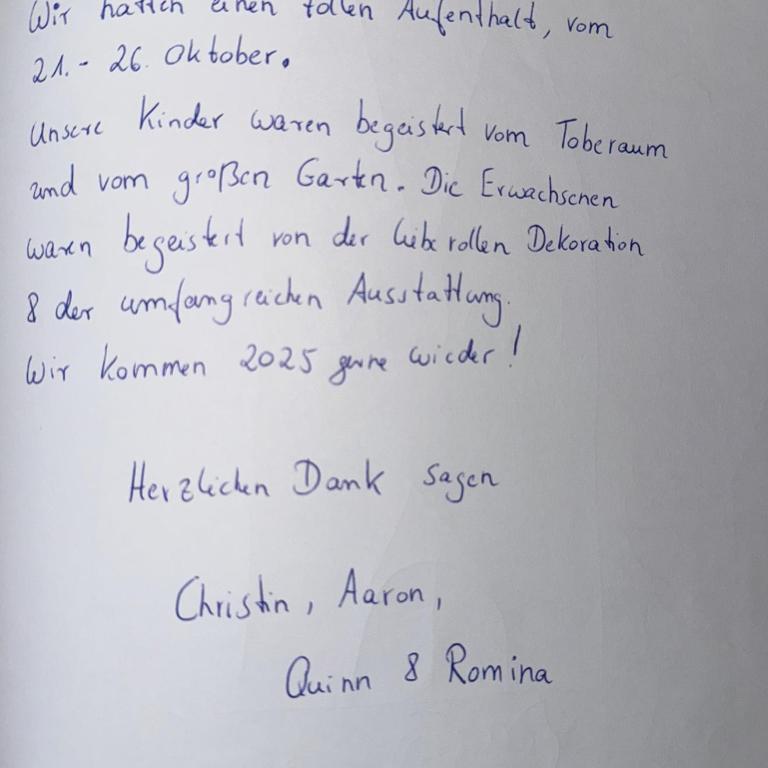 Wir hatten einen tollen Aufenthalt, vom
21. - 26. Oktober.
Unsere Kinder waren begeistert vom Toberaum
und vom großen Garten. Die Erwachsenen
waren begeistert von der liebevollen Dekoration
& der umfangreichen Ausstattung.
Wir kommen 2025 gerne wieder!
Herzlichen Dank sagen
Christin, Aaron,
Quinn & Romina